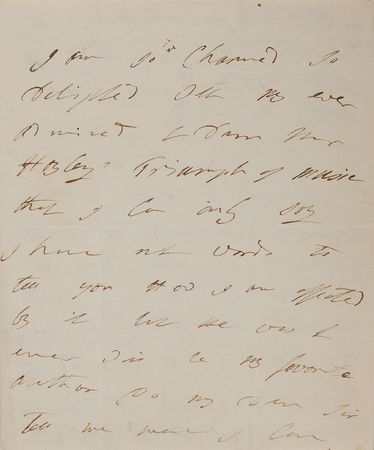 I am so Charmed so
Delighted with my ever
admired & Dear Mr
Hayley's Triumph of Music
that I Can only say
I have not words to
tell you How I am affected
by it let me ever &
ever Sir be my favorite
author Do my Dear Sir
Tell me were I Can